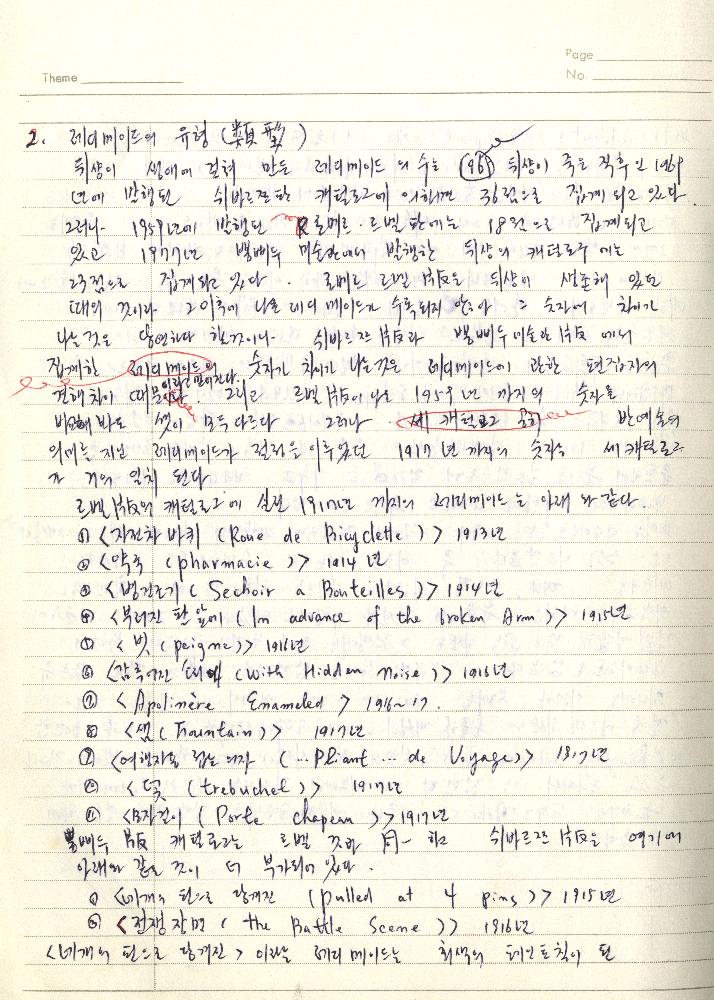 Page
Theme
No.
2. 레디메이드의 유형 (類型)
뒤샹이 생애에 걸쳐 만든 레디메이드의 수는 뒤샹이 죽은 직후인 1969
년에 발행된 쉬바르즈판 캐털로그에 의하면 36점으로 집계되고 있다.
그러나 1959년에 발행된 로베르·르벨판에는 18점으로 집계되고
있고 1977년 뽕삐두 미술관에서 발행한 뒤샹의 캐털로그에는
23점으로 집계되고 있다. 로베르 르벨 版은 뒤샹이 생존해 있던
때의 것이라 그 이후에 나온 레디메이드가 수록되지 않아 그 숫자에 차이가
나는 것은 당연하다 할 것이나 쉬바르즈 版과 뽕삐두 미술관 版에서
집계한 레디메이드의 숫자가 차이가 나는 것은 레디메이드에 관한 편집자의
견해차이 때문이라고 믿어진다. 그리고 르벨 版이 나온 1959년까지의 숫자를
비교해 봐도 셋이 모두 다르다 그러나 세 캐털로그 공히 반예술의
의미를 지닌 레디메이드가 절정을 이루었던 1917년까지의 숫자는 세 캐털로그
가 거의 일치된다
르벨 版의 캐털로그에 실린 1917년까지의 레디메이드는 아래와 같다.
① <자전차 바퀴 (Roue de Bicyclette)> 1913년
② <약국 (pharmacie)> 1914년
③ <병건조기 (Sechoir a Bouteilles)> 1914년
④ <부러진 팔 앞에 (In advance of the broken Arm)> 1915년
⑤ <빗 (peigne)> 1916년
⑥ <감추어진 (With Hidden noise)> 1916년
⑦ <Apolinère Enameled> 1916~17.
⑧ <샘 (Fountain)> 1917년
⑨ <여행자용 접는 의자 (...Pliant ... de Voyage)> 1917년
⑩ <덫 (trebuchet)> 1917년
⑪ <모자걸이 (Porte chapeau)> 1917년
뽕삐두 版 캐털로그는 르벨 것과 同一하고 쉬바르즈 版은 여기에
아래와 같은 것이 더 부가되어 있다.
① <네개의 핀으로 당겨진 (pulled at 4 pins)> 1915년
② <전쟁장면 (the Battle Scene)> 1916년
<네개의 핀으로 당겨진> 이라는 레디메이드는 회색의 페인트칠이 된